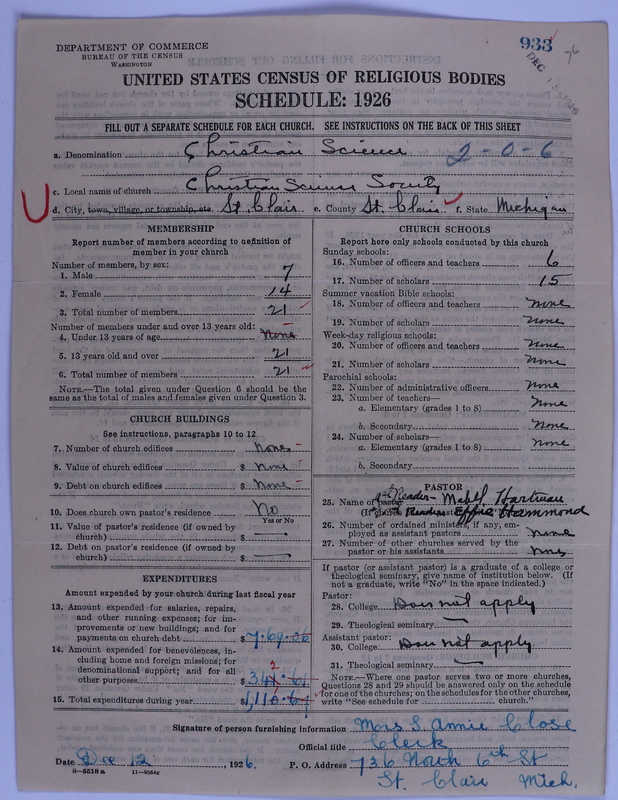 DEPARTMENT OF COMMERCE
BUREAU OF THE CENSUS
WASHINGTON
933
DEC
UNITED STATES CENSUS OF RELIGIOUS BODIES
SCHEDULE: 1926
FILL OUT A SEPARATE SCHEDULE FOR EACH CHURCH. SEE INSTRUCTIONS ON THE BACK OF THIS SHEET
a. Denomination Christian Science 2-0-6
c. Local name of church Christian Science Society
d. City, town, village, or township, etc. St. Clair e. County St. Clair f. State Michigan
MEMBERSHIP
Report number of members according to definition of
member in your church
Number of members, by sex:
1. Male 7
2. Female 14
3. Total number of members 21
Number of members under and over 13 years old:
4. Under 13 years of age None
5. 13 years old and over 21
6. Total number of members 21
NOTE.—The total given under Question 6 should be the
same as the total of males and females given under Question 3.
CHURCH BUILDINGS
See instructions, paragraphs 10 to 12
7. Number of church edifices None
8. Value of church edifices $ None
9. Debt on church edifices $ None
10. Does church own pastor's residence No
Yes or No
11. Value of pastor's residence (if owned by
church) $
12. Debt on pastor's residence (if owned by
church) $
EXPENDITURES
Amount expended by your church during last fiscal year
13. Amount expended for salaries, repairs,
and other running expenses; for im-
provements or new buildings; and for
payments on church debt $
14. Amount expended for benevolences, in-
cluding home and foreign missions; for
denominational support; and for all
other purposes $
15. Total expenditures during year $
CHURCH SCHOOLS
Report here only schools conducted by this church
Sunday schools:
16. Number of officers and teachers 6
17. Number of scholars 15
Summer vacation Bible schools:
18. Number of officers and teachers None
19. Number of scholars None
Week-day religious schools:
20. Number of officers and teachers None
21. Number of scholars None
Parochial schools:
22. Number of administrative officers None
23. Number of teachers—
a. Elementary (grades 1 to 8) None
b. Secondary None
24. Number of scholars—
a. Elementary (grades 1 to 8) None
b. Secondary
PASTOR
25. Name of pastor 1st Reader- Mabel
Hammond
26. Number of ordained ministers, if any, em-
ployed as assistant pastors None
27. Number of other churches served by the
pastor or his assistants None
If pastor (or assistant pastor) is a graduate of a college or
theological seminary, give name of institution below. (If
not a graduate, write "No" in the space indicated.)
Pastor:
28. College Does not apply
29. Theological seminary
Assistant pastor:
30. College Does not apply
31. Theological seminary
NOTE.—Where one pastor serves two or more churches,
Questions 28 and 29 should be answered only on the schedule
for one of the churches; on the schedules for the other churches,
write "See schedule for church."
Signature of person furnishing information Mrs S. Annie Close
Official title Clerk
Date Dec 12, 1926. P. O. Address 736 North 6th St
8-5518 a 11-9064g St. Clair Mich.